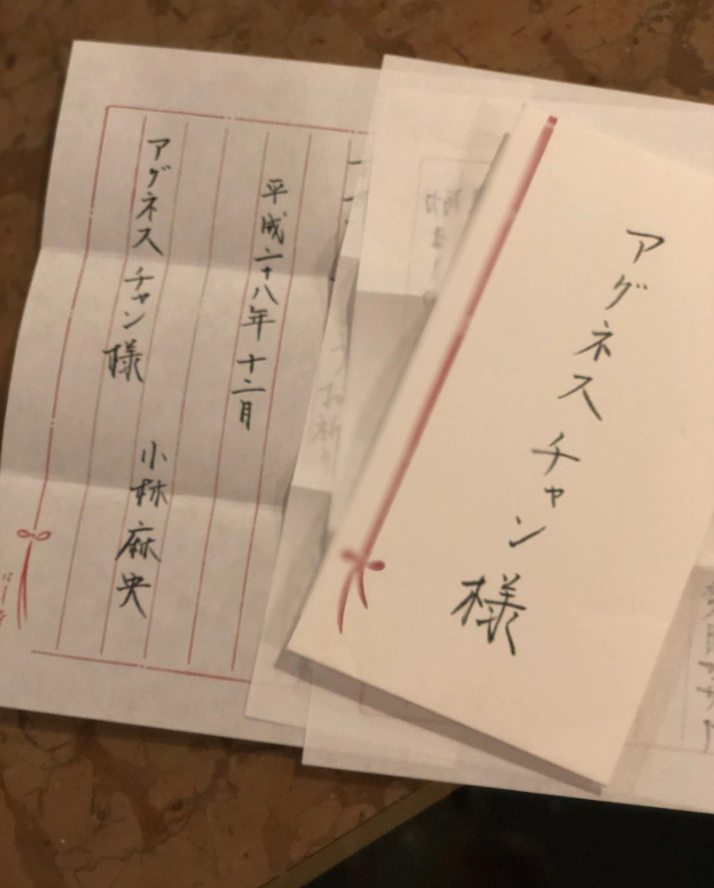 アグネス チャン様
平成二十八年十二月
小林麻央
アグネス チャン様